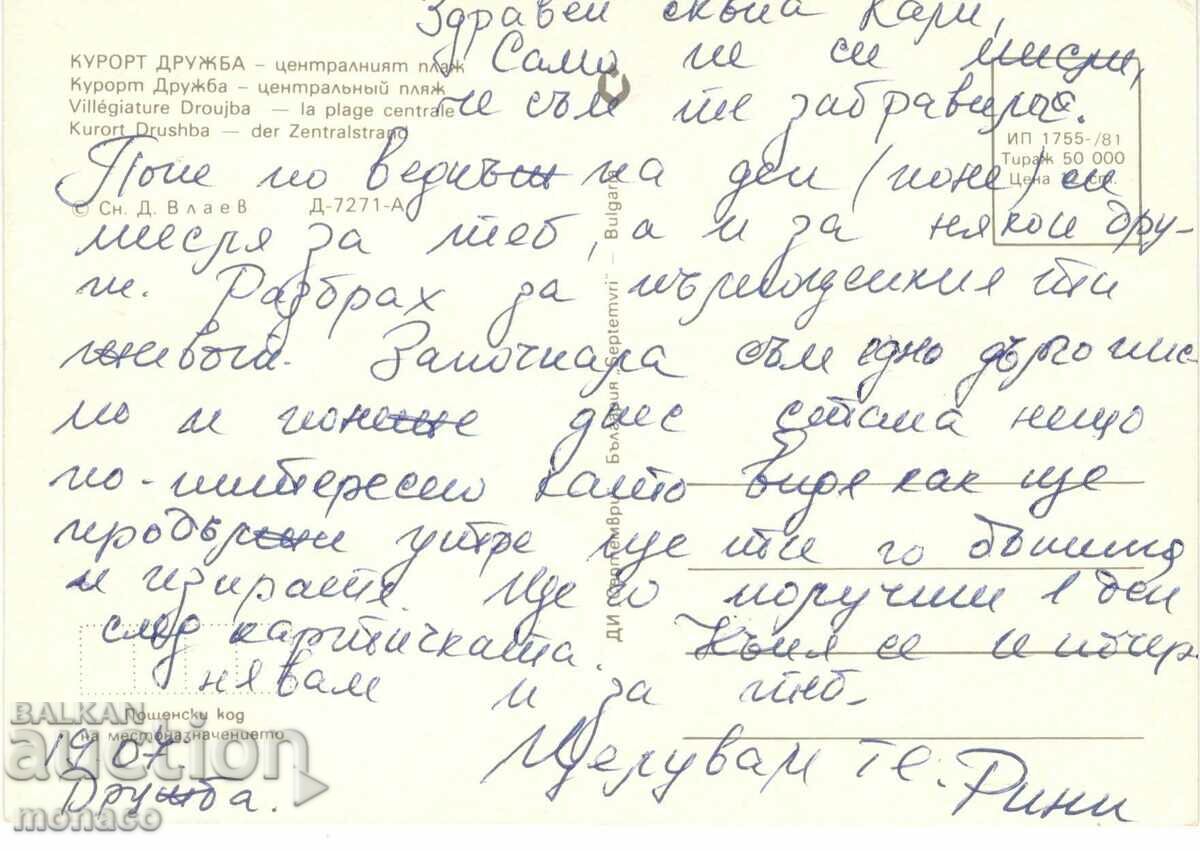 Здравей скъпа Кари,
Само не си мисли,
че съм те забравила.
Поне по веднъж на ден (поне) си
мисля за теб, а и за някои дру-
ги. Разбрах за
ти
живот. Започнала съм едно дълго пис-
мо и понеже днес стана нещо
по-интересно като видя как ще
продължи утре ще ти го
и изпратя. Ще го получиш 1 ден
след картичката. Къпя се и
за теб.
Целувам те.
Рини
19.07.
Дружба.
КУРОРТ ДРУЖБА – централният плаж
Курорт Дружба – центральный пляж
Villégiature Droujba — la plage centrale
Kurort Drushba — der Zentralstrand
© Сн. Д. Влаев Д-7271-А
ДИ „Септември“ България „Septemvri“ — Bulgaria
ИП 1755-/81
Тираж 50 000
Цена
Пощенски код
на местоназначението
BALKAN
auction
monaco